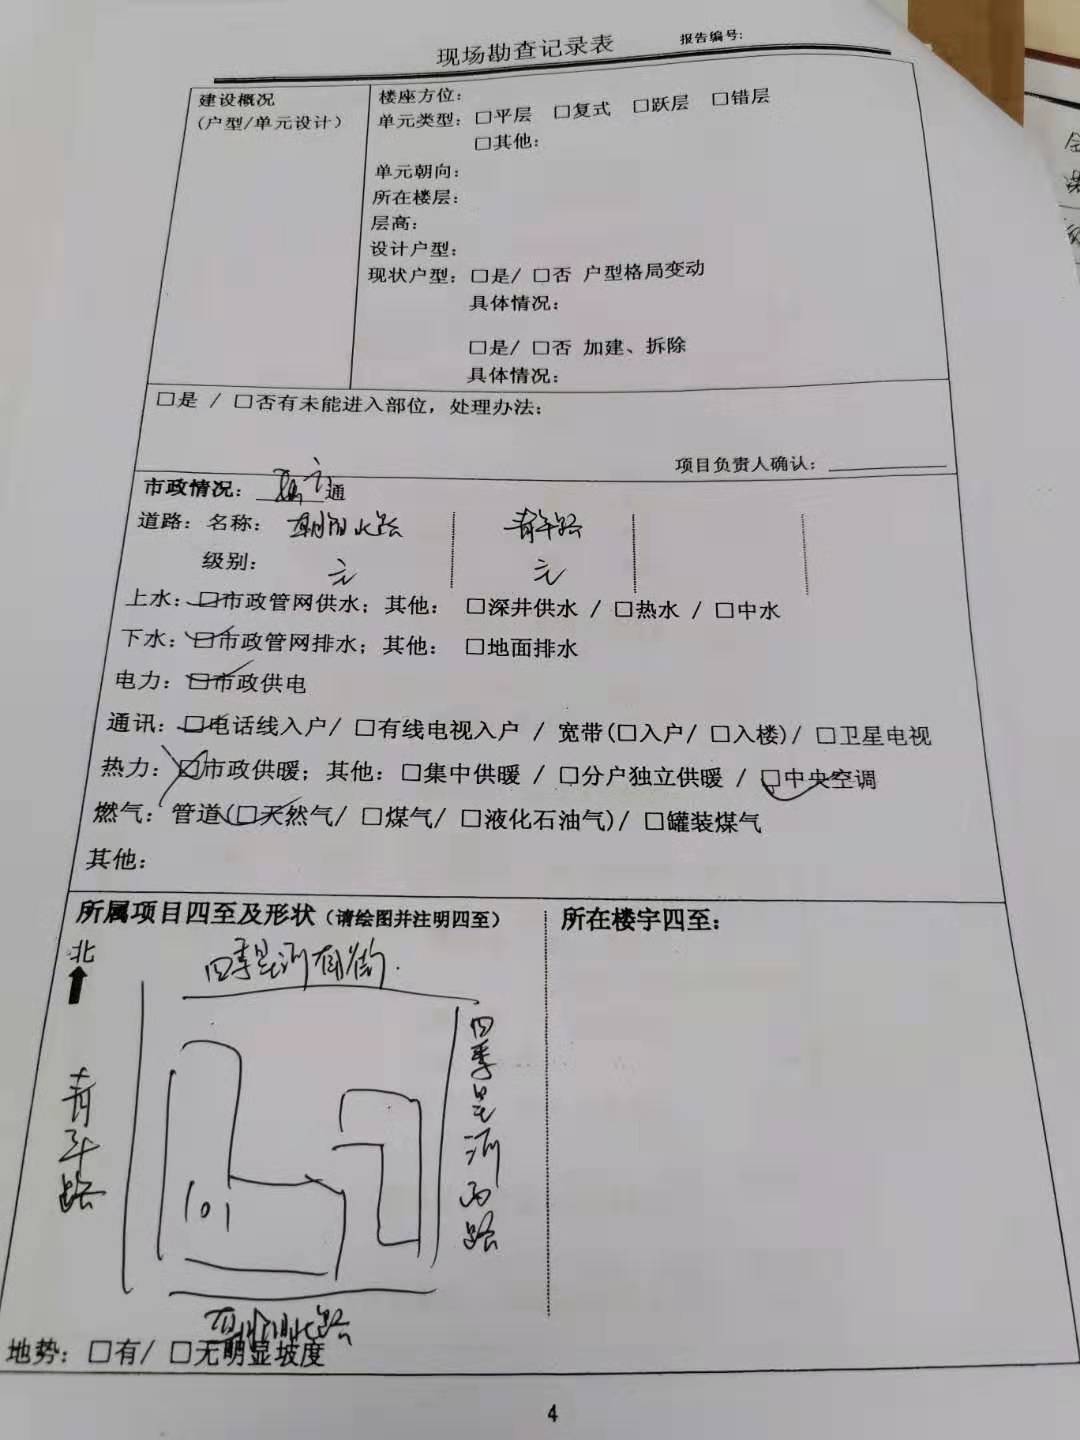 现场勘查记录表 报告编号:
建设概况
(户型/单元设计)
楼座方位:
单元类型: □平层 □复式 □跃层 □错层
□其他:
单元朝向:
所在楼层:
层高:
设计户型:
现状户型: □是/ □否 户型格局变动
具体情况:
□是/ □否 加建、拆除
具体情况:
□是 / □否有未能进入部位，处理办法:
项目负责人确认:
市政情况: 通
道路: 名称: 朝阳北路 青年路
级别:
上水: □市政管网供水; 其他: □深井供水 / □热水 / □中水
下水: □市政管网排水; 其他: □地面排水
电力: □市政供电
通讯: □电话线入户/ □有线电视入户 / 宽带(□入户/ □入楼)/ □卫星电视
热力: □市政供暖; 其他: □集中供暖 / □分户独立供暖 / □中央空调
燃气: 管道(□天然气/ □煤气/ □液化石油气)/ □罐装煤气
其他:
所属项目四至及形状(请绘图并注明四至) 所在楼宇四至:
北
四季星河南街
四季星河西路
青年路
101
朝阳北路
地势: □有/ □无明显坡度
4